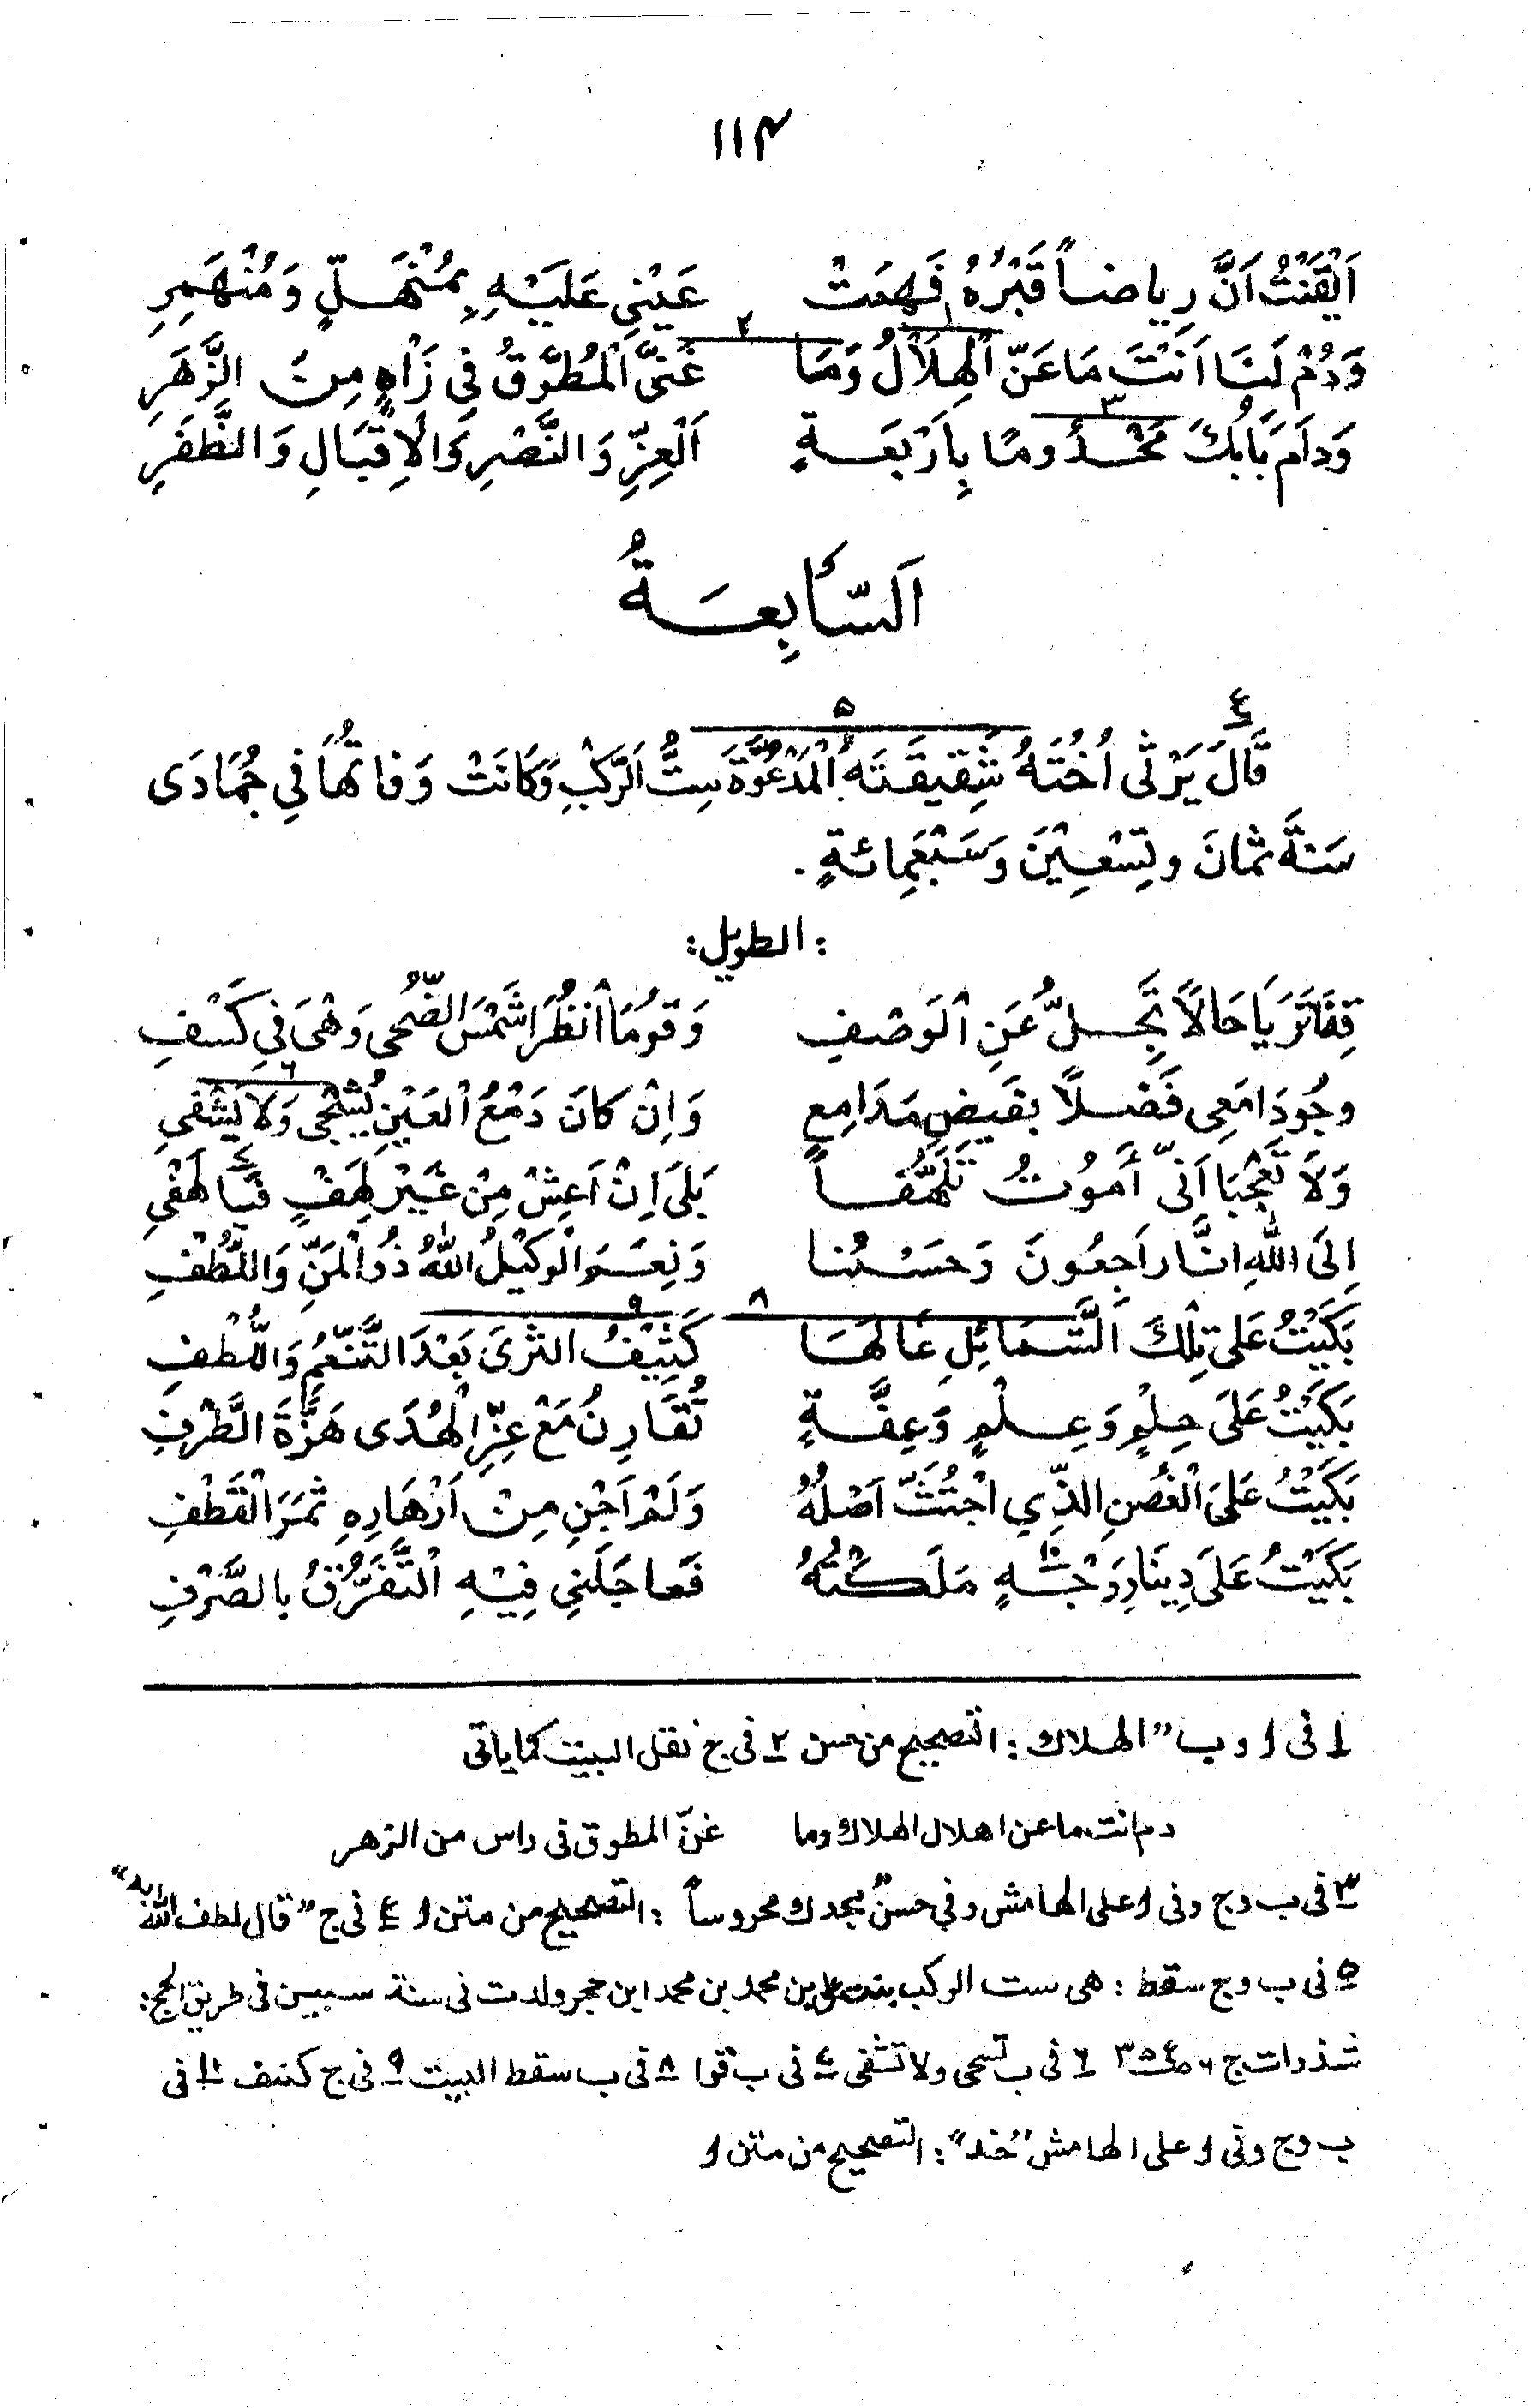 ١١٣
اَيْقَنْتُ اَنَّ رِياضاً قَبْرُهُ فَهَمَتْ عَيْنِي عَلَيْهِ بِمُنْهَلٍّ وَمُنْهَمِرِ
١ ٢
وَدُمْ لَنَا اَنْتَ مَا عَنّ الْهِلَالُ وَمَا غَنَّى الْمُطَوَّقُ فِي زَاهٍ مِنَ الزَّهَرِ
٣
وَدَامَ بَابُكَ مَخْدُومًا بِاَرْبَعَةٍ اَلْعِزِّ وَالنَّصْرِ وَالْاِقْبَالِ وَالظَّفَرِ
اَلسَّابِعَةُ
٤ ٥
قَالَ يَرْثى اُخْتَهُ شَقِيقَتَهُ الْمَدْعُوَّةَ سِتُّ الرَّكْبِ وَكَانَتْ وَفاتُهَا فِي جُمَادَى
سَنَةَ ثَمَانَ وتِسْعِيْنَ وَسَبْعَمِائَةٍ .
: الطويل :
قِفَا تَرَيَا حَالًا تَجِلُّ عَنِ الْوَصْفِ وَقُومَا انْظُرَا شَمْسَ الضُّحى وَهْىَ فِي كَسْفِ
٦
وجُودَا مَعِى فَضْلًا بفَيضِ مَدَامِعٍ وَاِنْ كَانَ دَمْعُ الْعَيْنِ يُشْجِى وَلَا يَشْفِي
٧
وَلَا تَعْجَبَا اَنّى أَمُوتُ تَلَهُّفاً بَلَى اِنْ اَعِشْ مِنْ غَيْرِ لَهْفٍ فَيَا لَهْفِي
اِلَى اللّهِ اِنَّا راَجِعُونَ وَحَسْبُنا وَنِعْمَ الْوَكِيْلُ اللّهُ ذُو الْمَنِّ وَاللُّطْفِ
٨ ٩
بَكَيْتُ عَلى تِلْكَ الشَّمَائِلِ غَالَهَا كَثِيْفُ الثرَى بَعْدَ التَّنَعُّمِ وَاللُّطْفِ
بَكَيْتُ عَلَى حِلْمٍ وَعِلْمٍ وَعِفَّةٍ تُقَارِنُ مَعْ عِزِّ الْهُدَى هَزَّةَ الطَّرْفِ
بَكَيْتُ عَلَى الْغُصْنِ الذِّي اجْتُثَّ اَصْلُهُ وَلَمْ اَجْنِ مِنْ اَزْهَارِهِ ثَمَرَ الْقَطْفِ
١٠
بَكَيْتُ عَلَى دِينَارِ وَجْنَةٍ مَلَكْتُهُ فَعاجَلَنِي فِيْهِ التَّفَرُّقُ بِالصَّرْفِ
١ فى ا و ب "الهلاك : التصحيح من حسن ٢ فى ج نقل البيت كما ياتى
دم انت ما عن اهلال الهلاك وما غنّ المطوق فى راس من الزهر
٣ فى ب وج وفى ا على الهامش وفي حسن مجدك محروساً : التصحيح من متن ا ٤ فى ج "قال لطف الله به"
٥ فى ب وج سقط : هى ست الركب بنت على بن محمد بن محمد ابن حجر ولدت فى سنة سبعين فى طريق الحج :
شذرات ج ٦ ص ٣٥٤ ٦ فى ب تسحى ولا تشفى ٧ فى ب قوا ٨ فى ب سقط البيت ٩ فى ج كنيف ١٠ فى
ب وج وفى ا على الهامش "خد" : التصحيح من متن ا